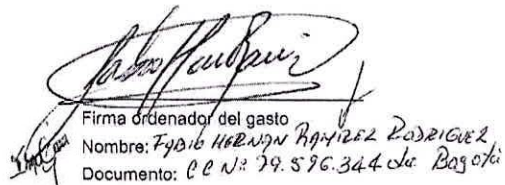 Firma ordenador del gasto
Nombre: FABIO HERNAN RAMIREZ RODRIGUEZ
Documento: CC Nº 79.596.344 de Bogotá